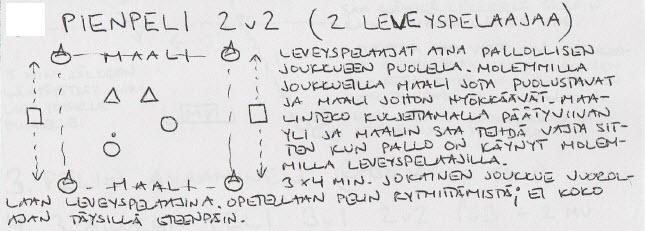 PIENPELI 2v2 (2 LEVEYSPELAAJAA)
MAALI
MAALI
LEVEYSPELAAJAT AINA PALLOLLISEN
JOUKKUEEN PUOLELLA. MOLEMMILLA
JOUKKUEILLA MAALI JOTA PUOLUSTAVAT
JA MAALI JOHON HYÖKKÄÄVÄT. MAA-
LINTEKO KULJETTAMALLA PÄÄTYVIIVAN
YLI JA MAALIN SAA TEHDÄ VASTA SIT-
TEN KUN PALLO ON KÄYNYT MOLEM-
MILLA LEVEYSPELAAJILLA.
3 x 4 MIN. JOKAINEN JOUKKUE VUOROL-
LAAN LEVEYSPELAAJINA. OPETELLAAN PELIN RYTMITTÄMISTÄ; EI KOKO
AJAN TÄYSILLÄ ETEENPÄIN.